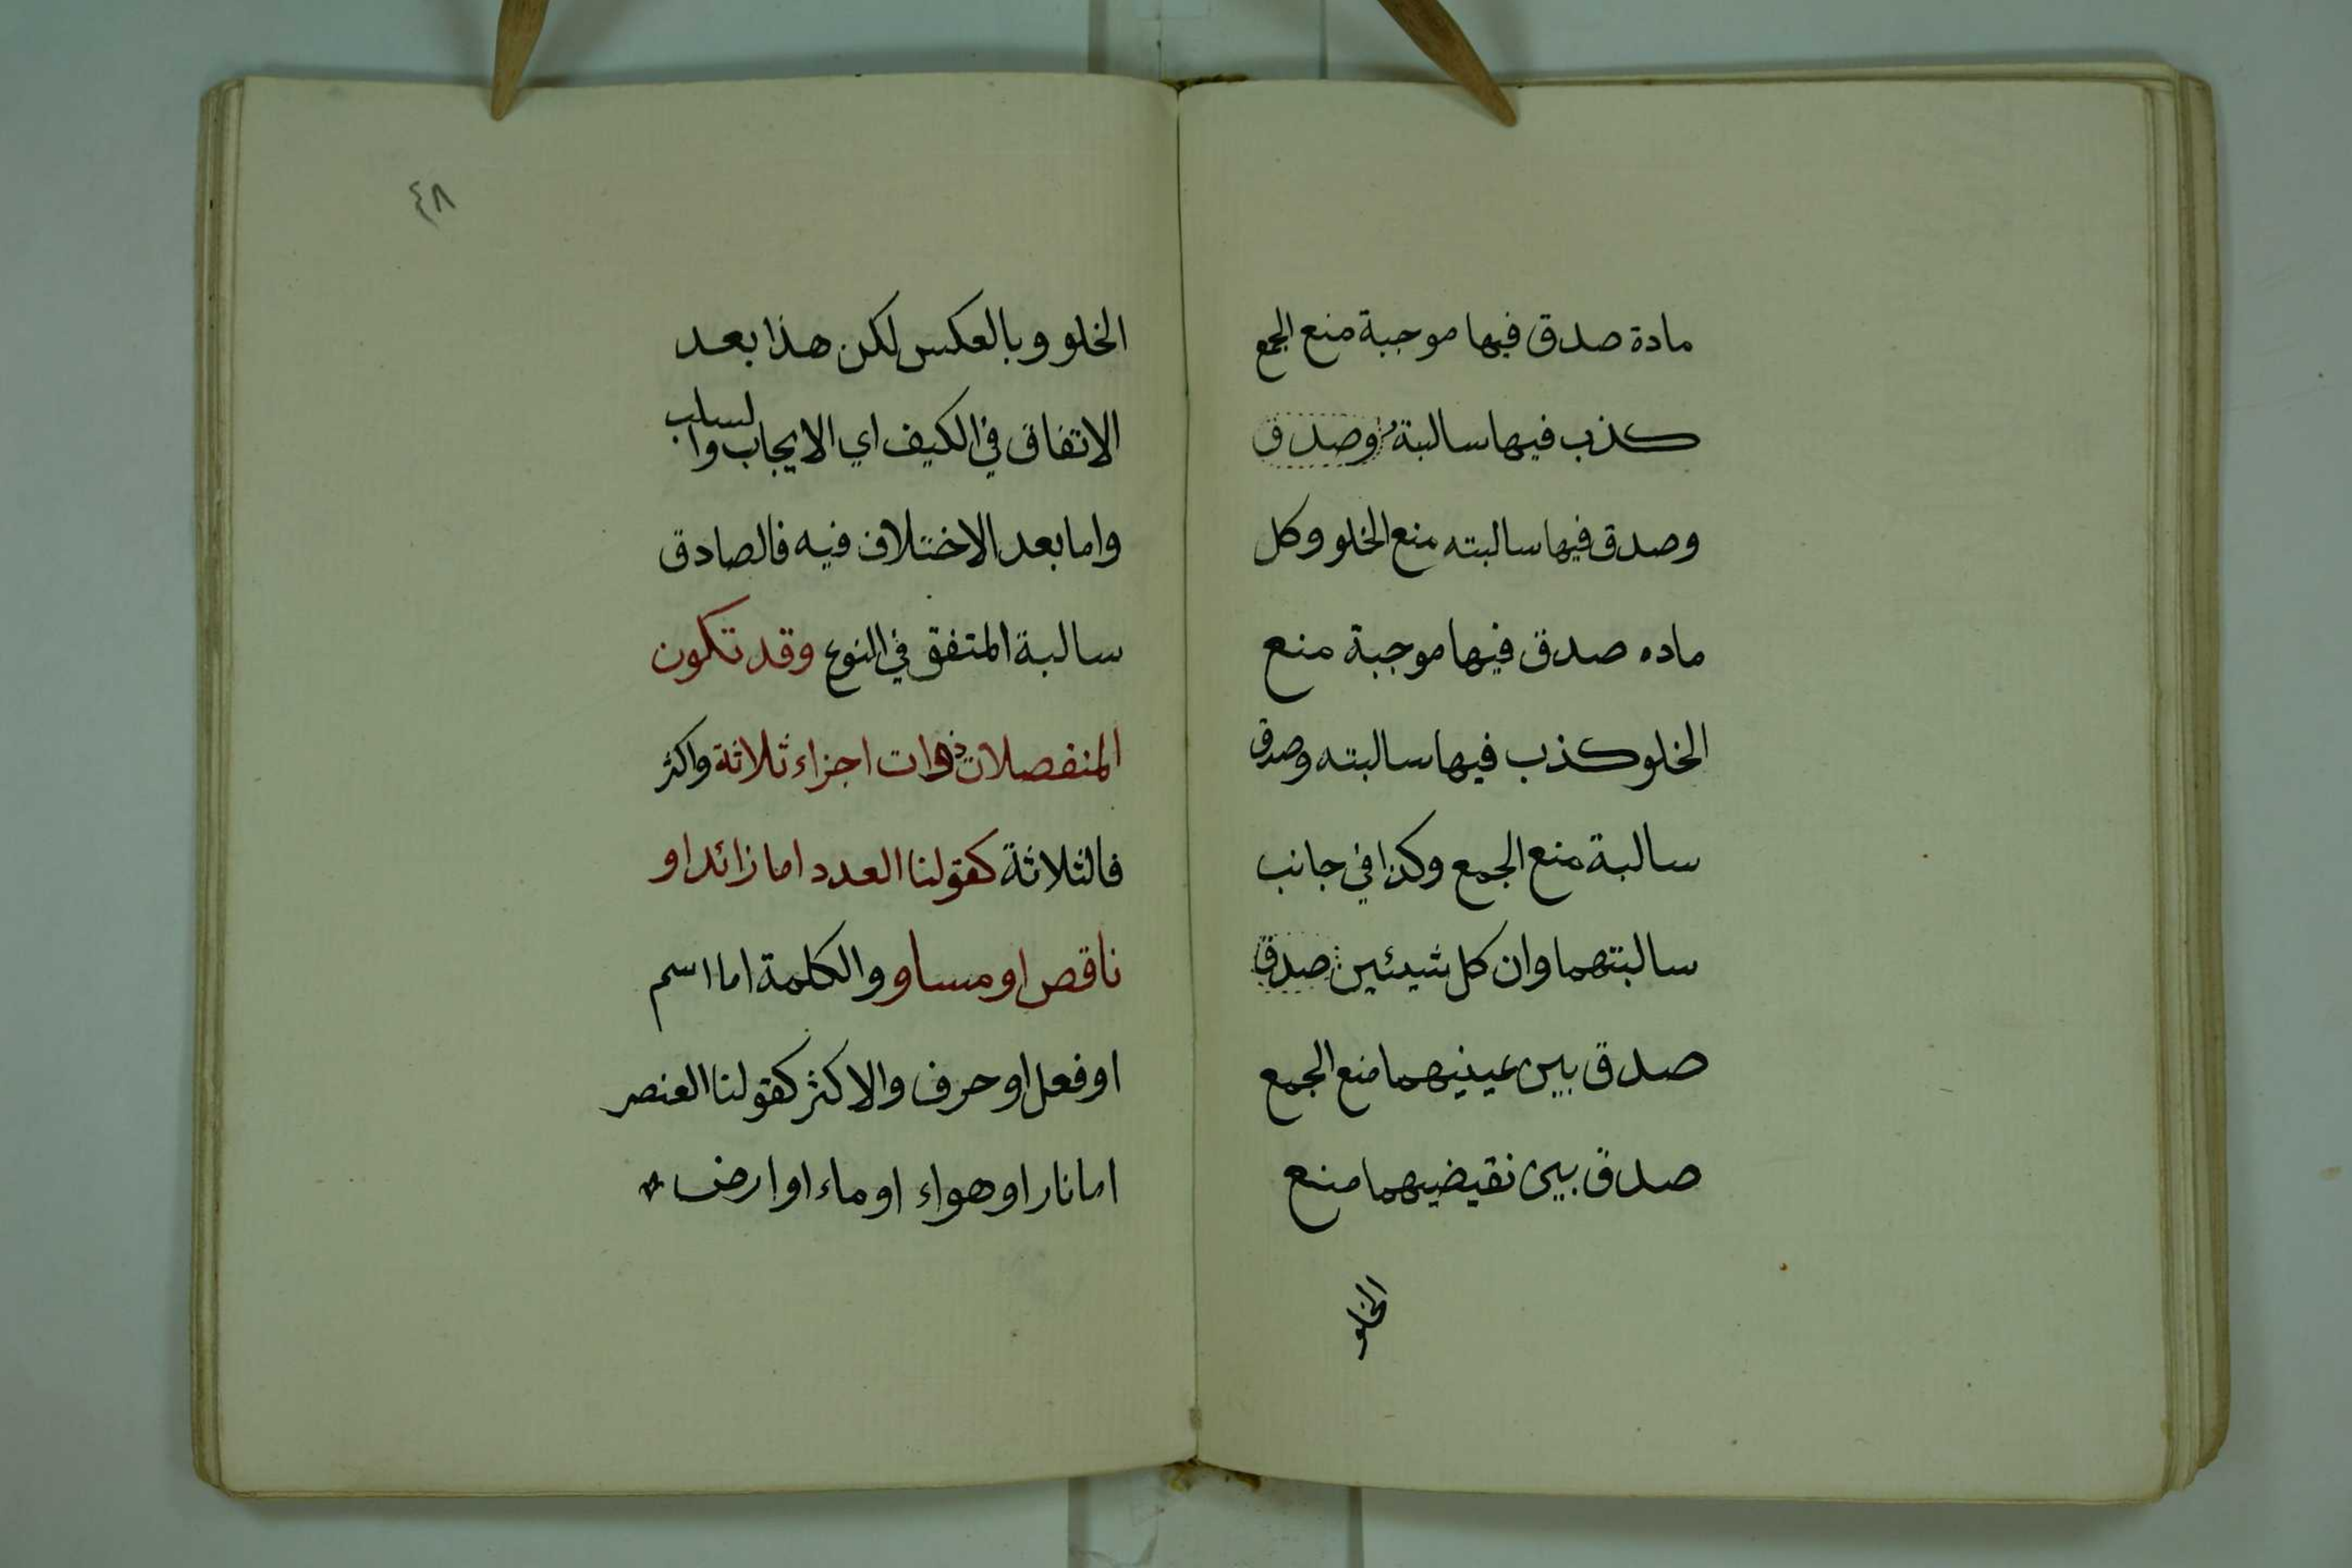 مادة صدق فيها موجبة منع الجمع
كذب فيها سالبته وصدق
وصدق فيها سالبته منع الخلو وكل
ماده صدق فيها موجبة منع
الخلو كذب فيها سالبته وصدق
سالبة منع الجمع وكذا في جانب
سالبتهما وان كل شيئين صدق
صدق بين عينيهما منع الجمع
صدق بين نقيضيهما منع
الخلو
٤٨
الخلو وبالعكس لكن هذا بعد
الاتفاق في الكيف اي الايجاب والسلب
واما بعد الاختلاف فيه فالصادق
سالبة المتفق في النوع وقد تكون
المنفصلات ذوات اجزاء ثلاثة واكثر
فالثلاثة كقولنا العدد اما زائد او
ناقص او مساو والكلمة اما اسم
او فعل او حرف والاكثر كقولنا العنصر
اما نار او هواء او ماء او ارض